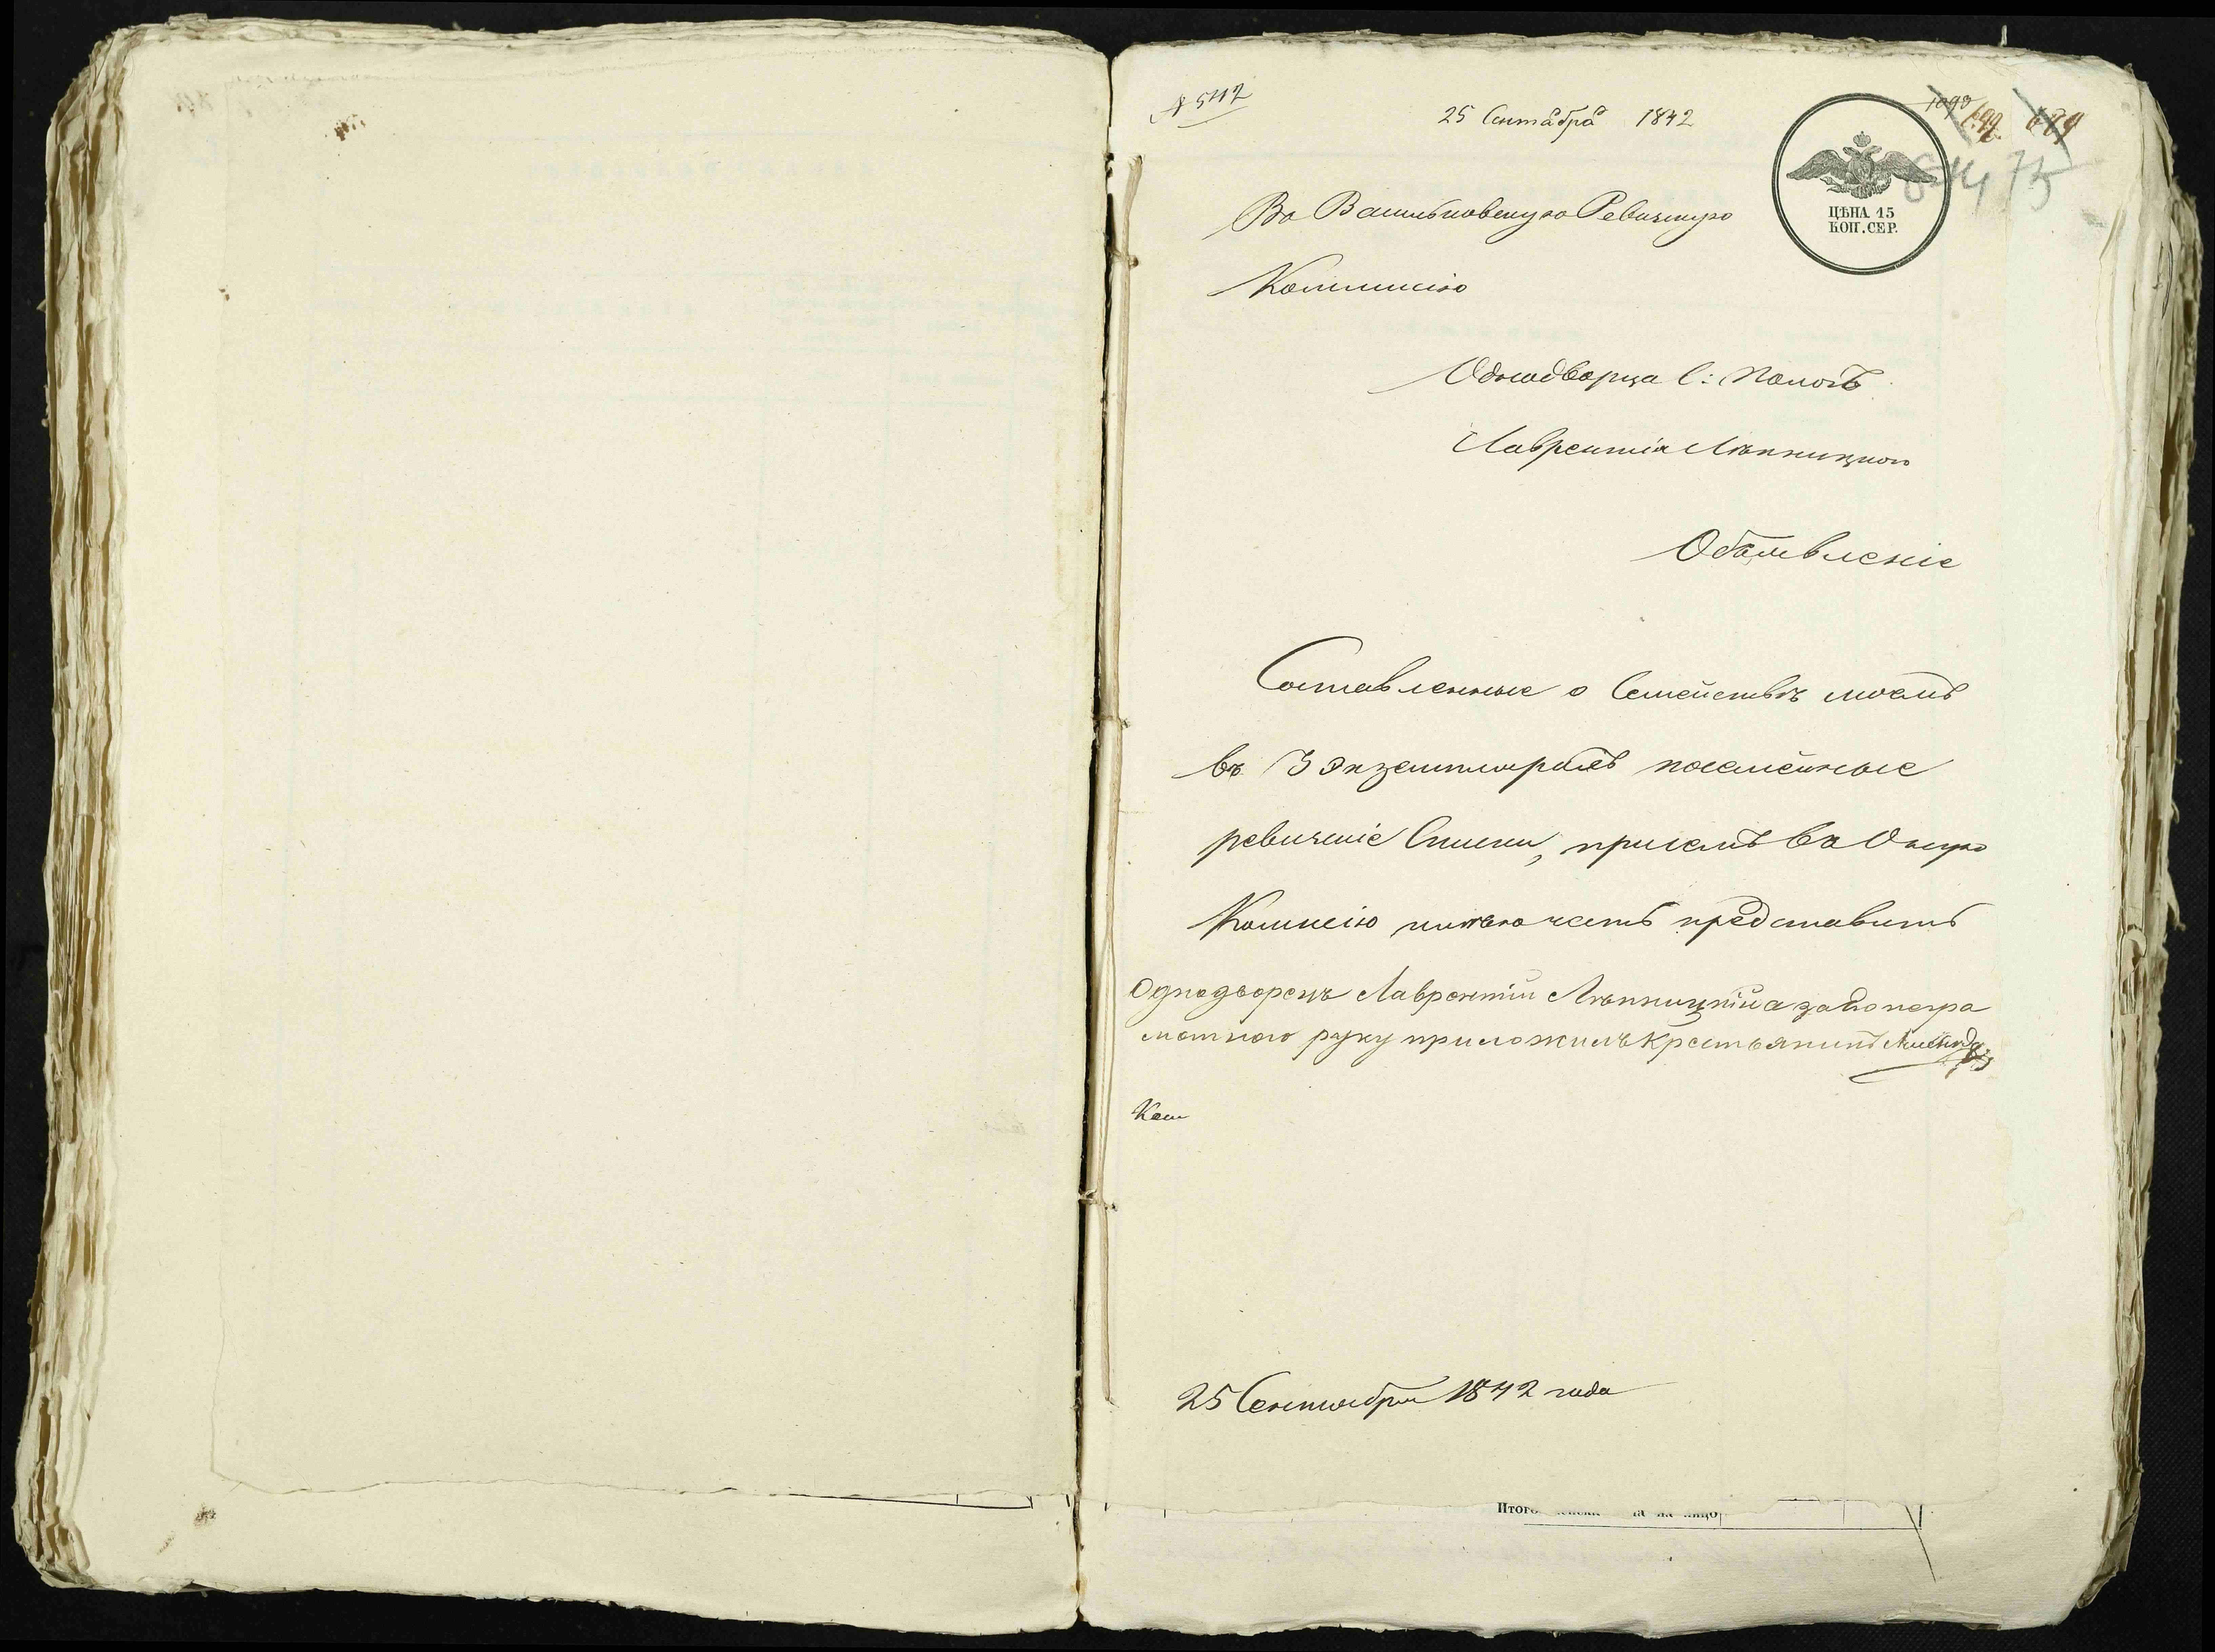 № 542
25 Сентября 1842
ЦѢНА 15
КОП. СЕР.
Въ Васильковскую Ревизскую
Коммисію
Однодворца С:
Лаврентія Лѣпницкого
Обьявленіе
Составленные о Семействѣ моемъ
въ 3 экземплярахъ посемейные
ревизскіе Списки, при семъ въ Оную
Комисію имѣю честь представить
Однодворецъ Лаврентій Лѣпницкій а за его негра
мотного руку приложилъ Крестьянинъ
25 Сентября 1842 года
Итого на лицо